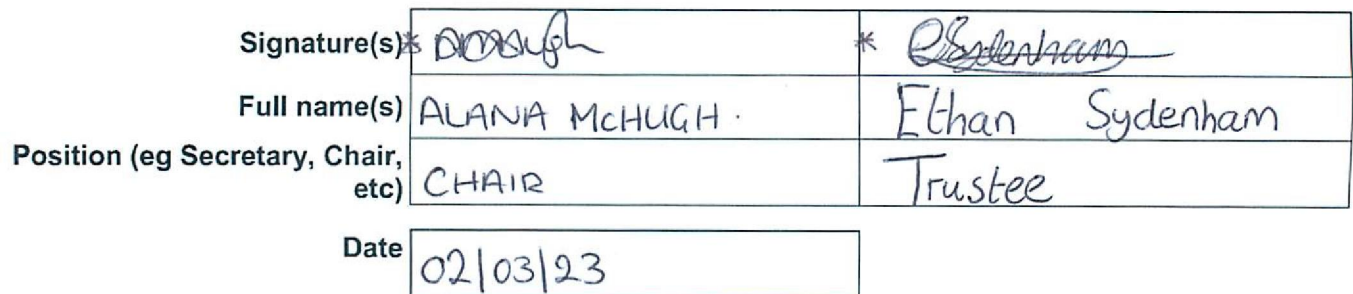 Signature(s)* * ESydenham
Full name(s) ALANA McHUGH. Ethan Sydenham
Position (eg Secretary, Chair,
etc) CHAIR Trustee
Date 02/03/23